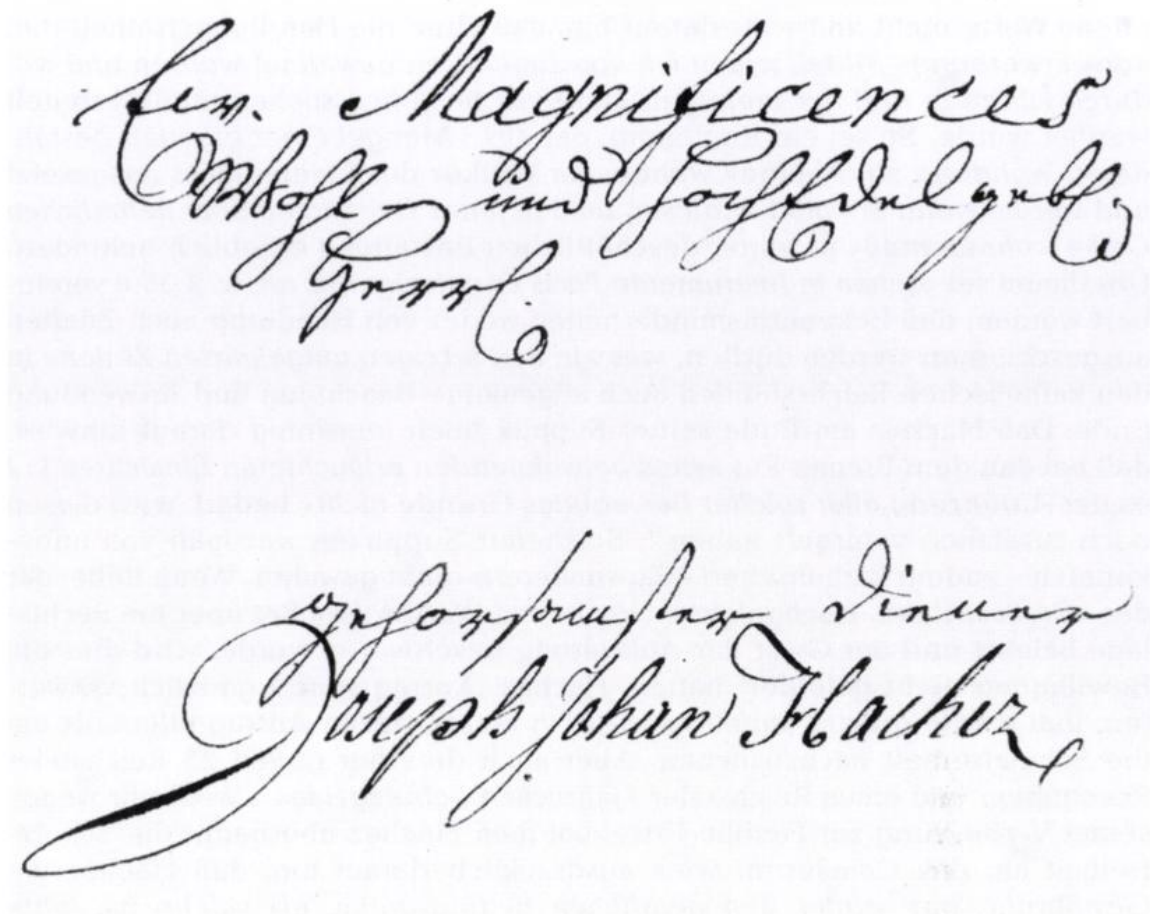 Ew. Magnificences
Wohl- und HochEdelgeb:
Herrl.
gehorsamster Diener
Joseph Johan Macher